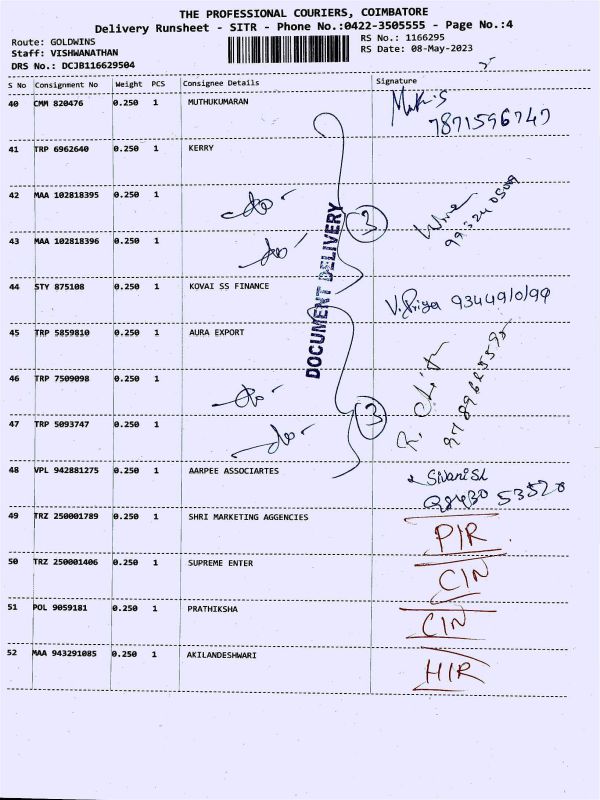 THE PROFESSIONAL COURIERS, COIMBATORE
Delivery Runsheet - SITR - Phone No.:0422-3505555 - Page No.:4
Route: GOLDWINS
RS No.: 1166295
Staff: VISHWANATHAN
RS Date: 08-May-2023
DRS No.: DCJB116629504
S No Consignment No Weight PCS Consignee Details Signature
40 CMM 820476 0.250 1 MUTHUKUMARAN
7871596747
41 TRP 6962640 0.250 1 KERRY
42 MAA 102818395 0.250 1
3
43 MAA 102818396 0.250 1
DOCUMENT DELIVERY
44 STY 875108 0.250 1 KOVAI SS FINANCE V. Priya
45 TRP 5859810 0.250 1 AURA EXPORT
46 TRP 7509098 0.250 1
47 TRP 5093747 0.250 1
3
48 VPL 942881275 0.250 1 AARPEE ASSOCIARTES
49 TRZ 250001789 0.250 1 SHRI MARKETING AGGENCIES PIR
50 TRZ 250001406 0.250 1 SUPREME ENTER CIN
51 POL 9059181 0.250 1 PRATHIKSHA CIN
52 MAA 943291085 0.250 1 AKILANDESHWARI HIR